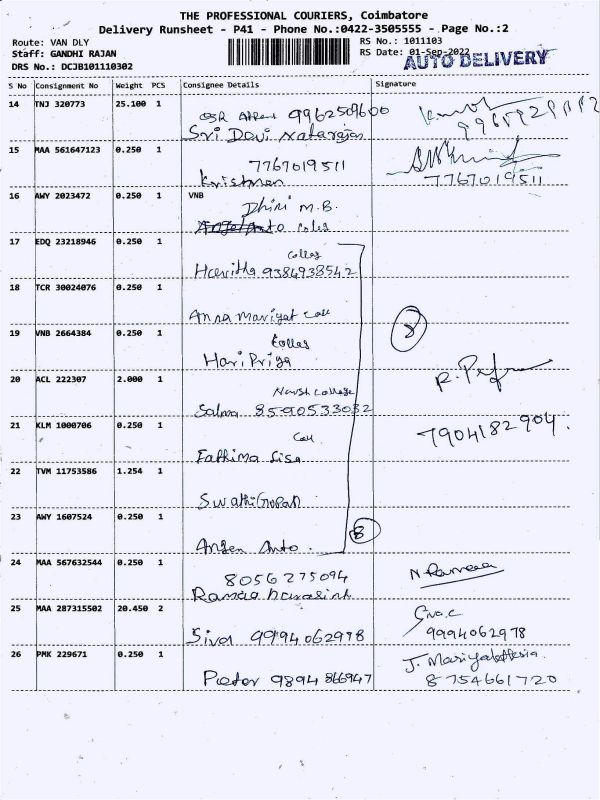 THE PROFESSIONAL COURIERS, Coimbatore
Delivery Runsheet - P41 - Phone No.:0422-3505555 - Page No.:2
Route: VAN DLY
RS No.: 1011103
Staff: GANDHI RAJAN
RS Date: 01-Sep-2022
AUTO DELIVERY
DRS No.: DCJB101110302
S No Consignment No Weight PCS Consignee Details Signature
14 TNJ 320773 25.100 1
9962509600
Sri Devi Natarajan
15 MAA 561647123 0.250 1
7767019511
Krishnan 7767019511
16 AWY 2023472 0.250 1 VNB
Dhini M.B.
17 EDQ 23218946 0.250 1
Haritha 9384938542
18 TCR 30024076 0.250 1
Anna Mariyat
19 VNB 2664384 0.250 1
8
Hari Priya
20 ACL 222307 2.000 1
College
Salma 8590533032
21 KLM 1000706 0.250 1
7904182904.
Fathima
22 TVM 11753586 1.254 1
Swathi Gopan
23 AWY 1607524 0.250 1
8
Angen Anto
24 MAA 567632544 0.250 1
8056275094
N Ramaa
25 MAA 287315502 20.450 2
Siva 9994062978
9994062978
26 PMK 229671 0.250 1
Peter 9894866947
8754661720